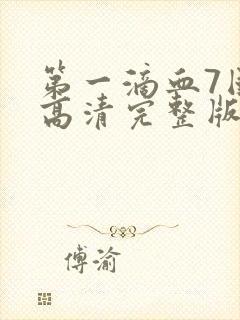 第一滴血7国
高清完整版
傅渝